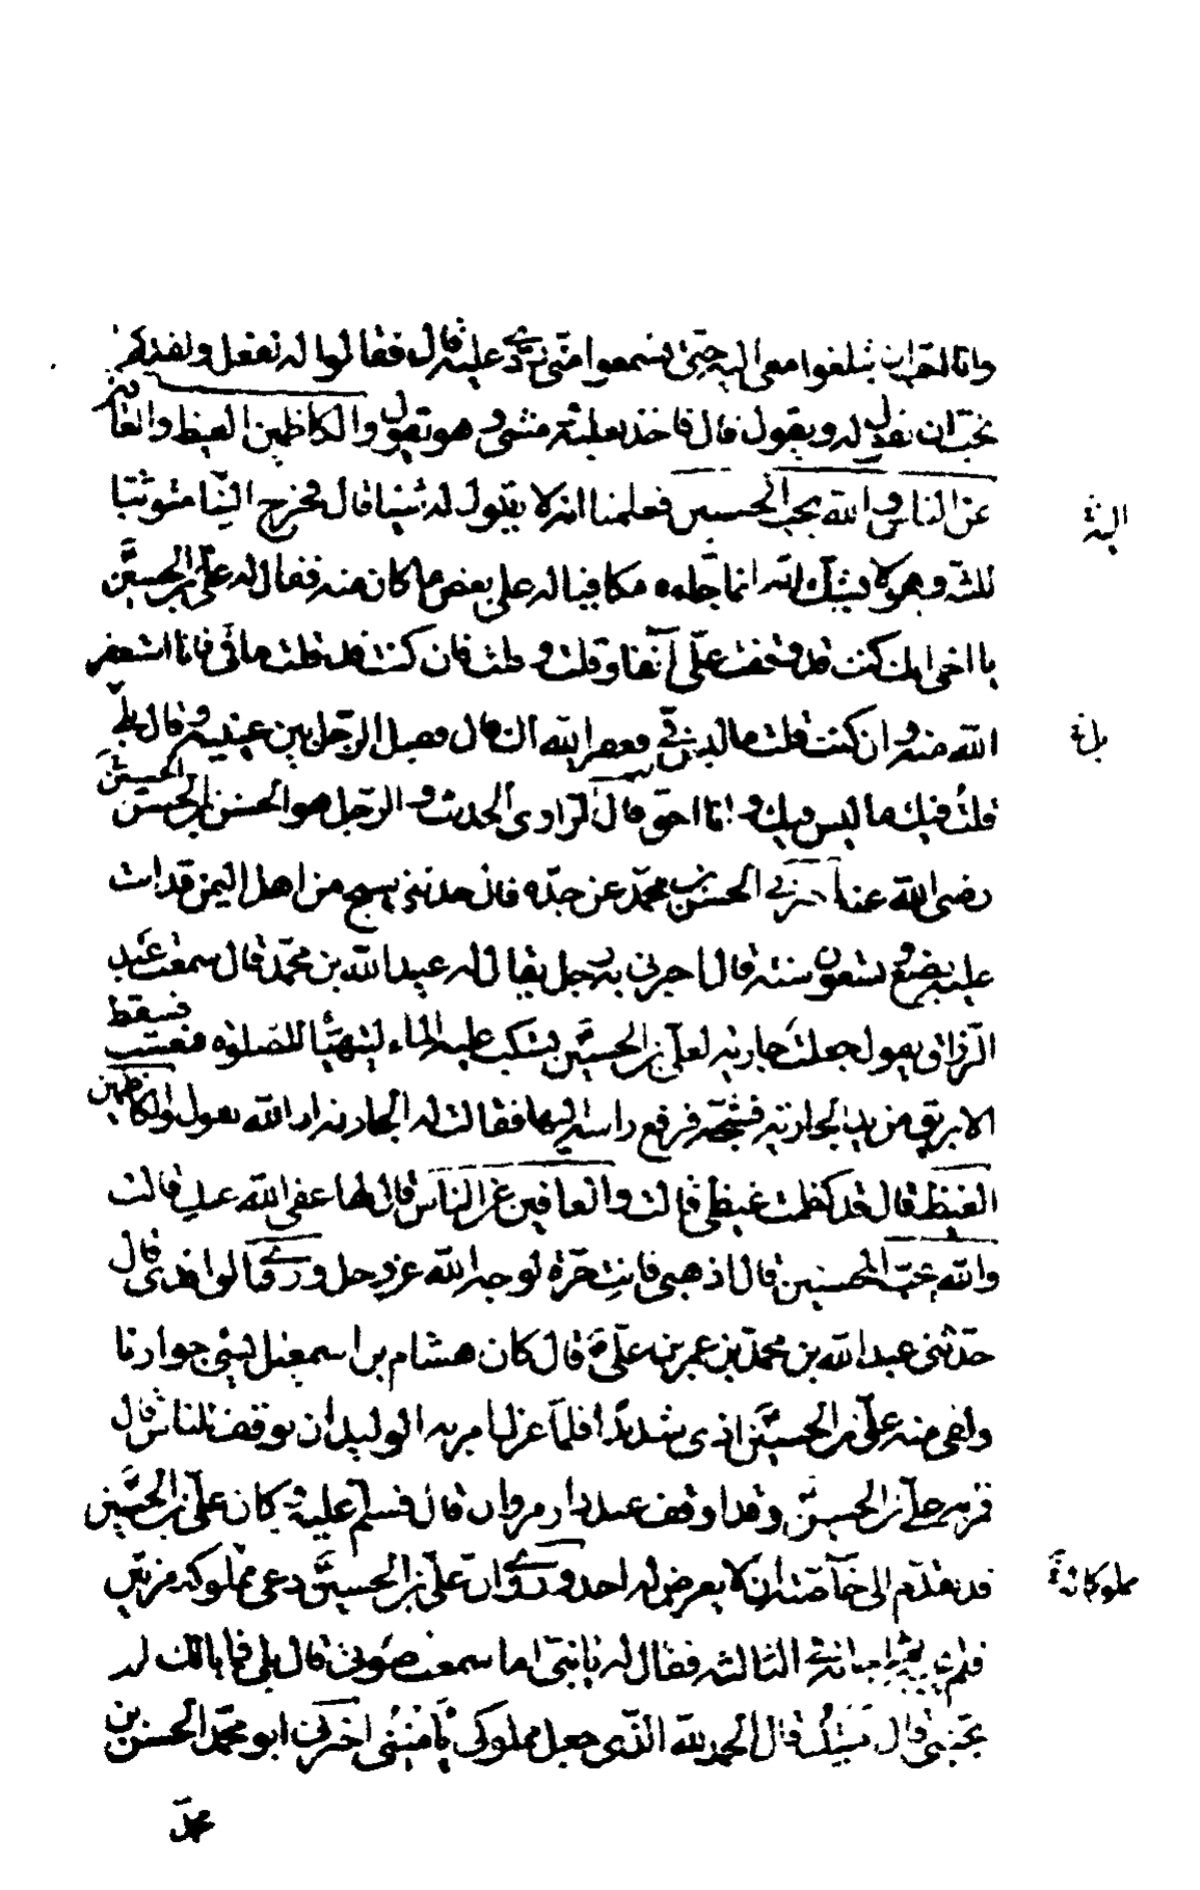 وانا احب ان تبلغوا معي اليه حتى تسمعوا مني ردي عليه قال فقالوا له نفعل ولقد كنا
نحب ان نقول له ويقول قال فاخذ نعليه ومشى وهو يقول والكاظمين الغيظ والعافين
عن الناس والله يحب المحسنين فعلمنا انه لا يقول له شيئا قال فخرج الينا متوثبا
الينا
للشر وهو لا يشك انه انما جاءه مكافيا له على بعض ما كان منه فقال له علي بن الحسين
يا اخي ان كنت قد وقفت علي آنفا وقلت وقلت فان كنت قد قلت ما في فانا استغفر
الله منه وان كنت قلت ما ليس في فغفر الله لك قال فقبل الرجل بين عينيه وقال بلى
بل
قلت فيك ما ليس فيك وانا احق به قال الراوي الحديث والرجل هو الحسن بن الحسن
رضي الله عنه اخبرني الحسن بن محمد عن جده قال حدثني شيخ من اهل اليمن قد اتت
عليه بضع وتسعون سنة قال اخبرني به رجل يقال له عبيد الله بن محمد قال سمعت عبد
الرزاق يقول جعلت جارية لعلي بن الحسين تسكب عليه الماء ليتهيأ للصلوة فنعست فسقط
الابريق من يد الجارية فشجه فرفع راسه اليها فقالت له الجارية ان الله يقول والكاظمين
الغيظ قال قد كظمت غيظي قالت والعافين عن الناس قال لها عفى الله عنك قالت
والله يحب المحسنين قال اذهبي فانت حرة لوجه الله عز وجل وروى الواقدي قال
حدثني عبد الله بن محمد بن عمر بن علي قال كان هشام بن اسمعيل يسيء جوارنا
ولقي منه علي بن الحسين اذى شديدا فلما عزل امر به الوليد ان يوقف للناس قال
فمر به علي بن الحسين وقد اوقف عند دار مروان قال فسلم عليه وكان علي بن الحسين
قد تقدم الى خاصته ان لا يعرض له احد وروي ان علي بن الحسين دعى مملوكه مرتين
مملوكا له
فلم يجبه واجابه في الثالثة فقال له يا بني اما سمعت صوتي قال بلى قال فما بالك لم
تجبني قال امنتك قال الحمد لله الذي جعل مملوكي يأمنني اخبرني ابو محمد الحسن بن
محمد